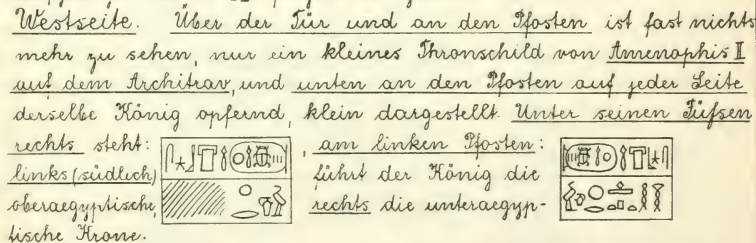 Westseite. Über der Tür und an den Pfosten ist fast nichts
mehr zu sehen, nur ein kleines Thronschild von Amenophis II
auf dem Architrav, und unten an den Pfosten auf jeder Seite
derselbe König opfernd, klein dargestellt. Unter seinen Füfsen
rechts steht: , am linken Pfosten:
links (südlich) führt der König die
oberaegyptische, rechts die unteraegyp-
tische Krone.